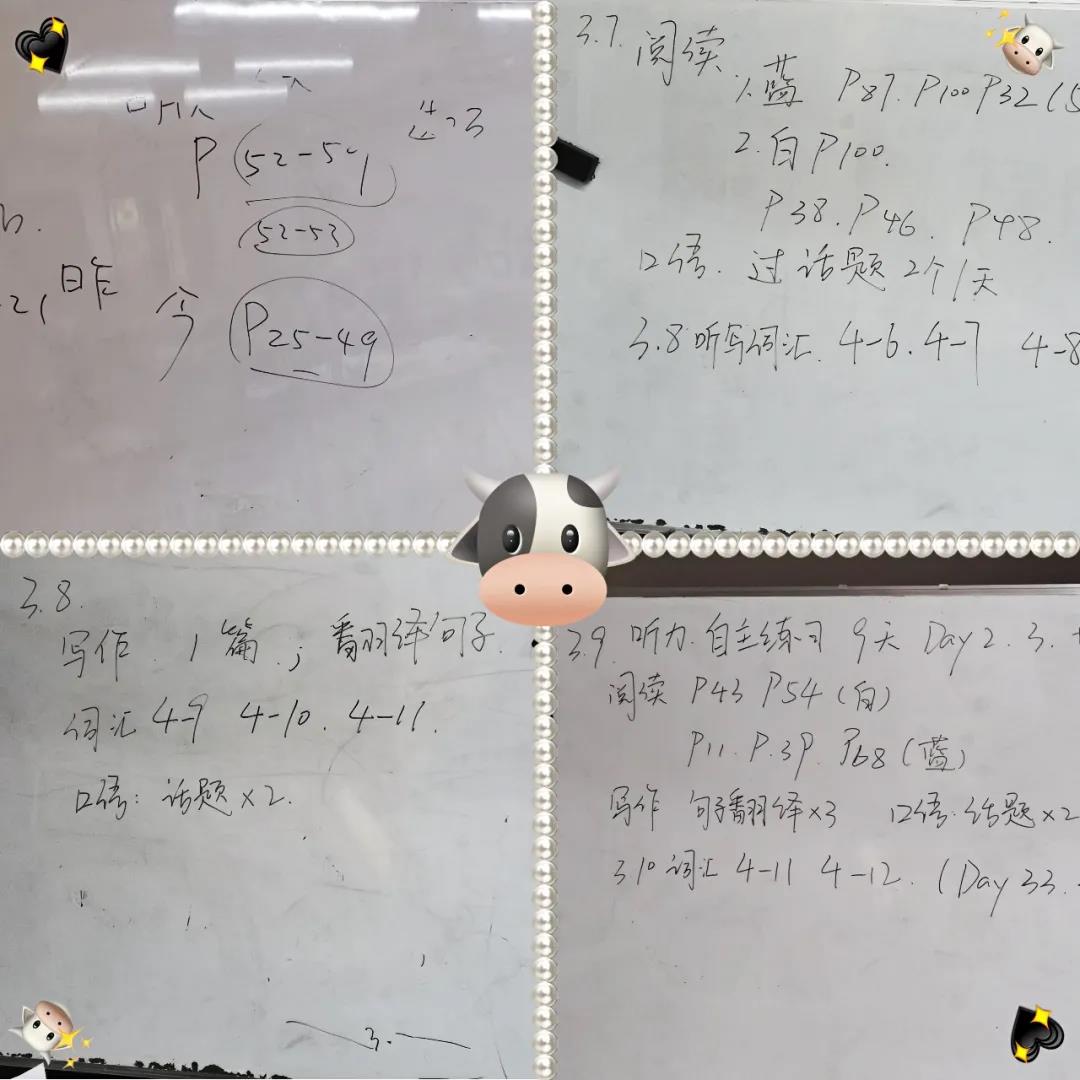 P (52-54)
(52-53)
昨 今 (P25-49)
3.7. 阅读
1. 蓝 P87. P100 P32 (5
2. 白 P100.
P38. P46. P48.
口语. 过话题 2个/天
3.8 听写词汇. 4-6. 4-7 4-8
3.8.
写作. 1篇.; 翻译句子.
词汇 4-9 4-10. 4-11.
口语: 话题×2.
3.9. 听力. 自主练习 9天 Day 2. 3.
阅读 P43 P54 (白)
P11. P.39. P68 (蓝)
写作 句子翻译×3 口语. 话题×2
3.10 词汇 4-11 4-12. (Day 33.
3.